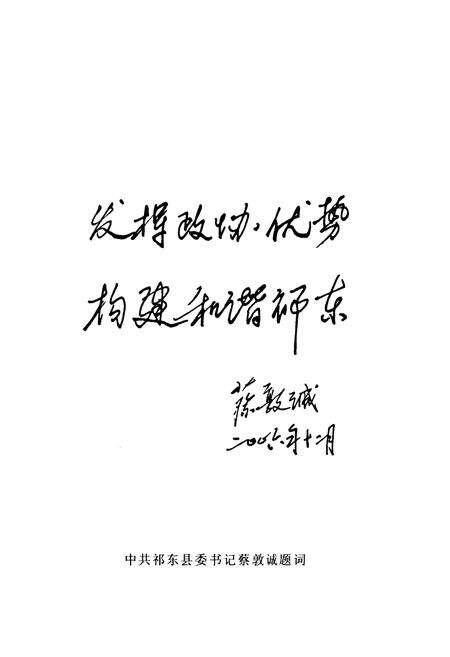 发挥政协优势
构建和谐祁东
蔡敦诚
二〇〇六年十二月
中共祁东县委书记蔡敦诚题词